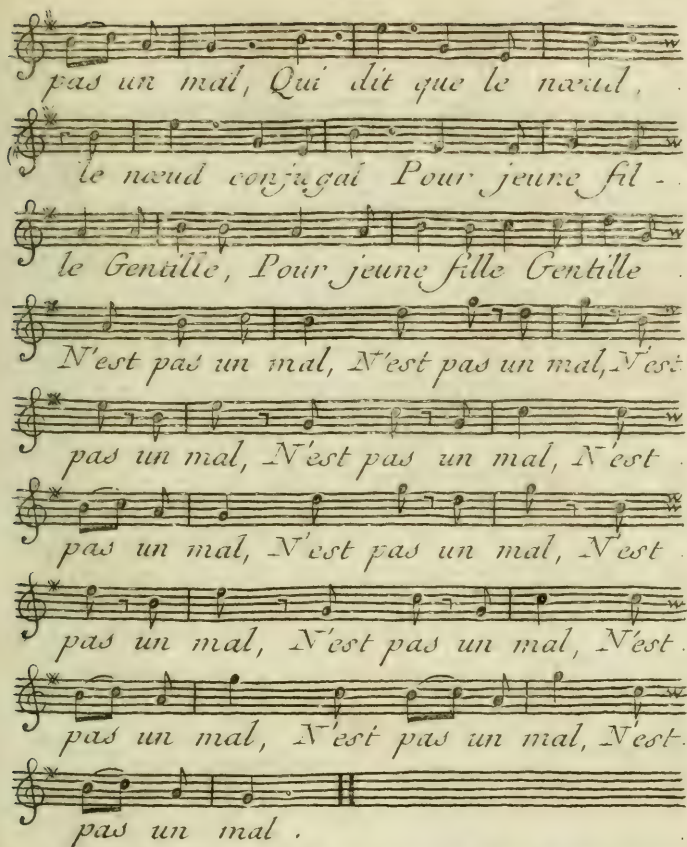 pas un mal, Qui dit que le nœud,
le nœud conjugal Pour jeune fil -
le Gentille, Pour jeune fille Gentille
N'est pas un mal, N'est pas un mal, N'est
pas un mal, N'est pas un mal, N'est
pas un mal, N'est pas un mal, N'est
pas un mal, N'est pas un mal, N'est
pas un mal, N'est pas un mal, N'est
pas un mal.